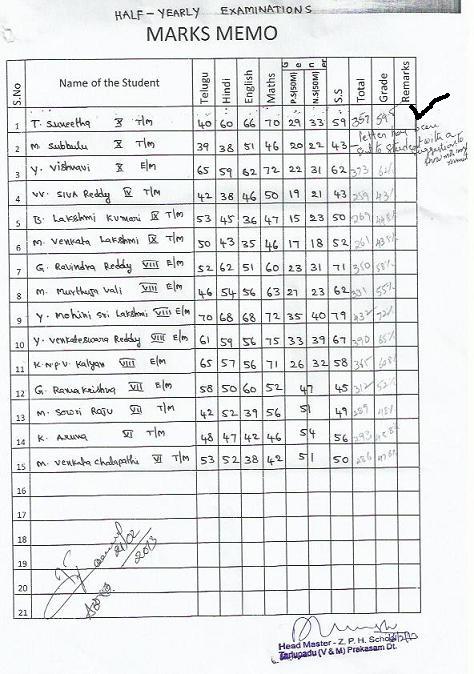 HALF-YEARLY EXAMINATIONS
MARKS MEMO
S.No Name of the Student Telugu Hindi English Maths P.S(50M) N.S(50M) S.S Total Grade Remarks
1 T. Suneetha X T/M 40 60 66 70 29 33 59 357
2 M. Subbulu X T/M 39 38 51 46 20 22 43
3 Y. Vishnavi X E/M 65 59 62 72 22 31 62 373
4 VV. SIVA Reddy IX T/M 42 38 46 50 19 21 43 259 43%
5 B. Lakshmi Kumari IX T/M 53 45 36 47 15 23 50 269
6 M. Venkata Lakshmi IX T/M 50 43 35 46 17 18 52 261
7 G. Ravindra Reddy VIII E/M 52 62 51 60 23 31 71 350 58%
8 M. Murthuja Vali VIII E/M 46 54 56 63 27 23 62 331 55%
9 Y. Mohini Sri Lakshmi VIII E/M 70 68 68 72 35 40 79 432 72%
10 Y. Venkateswara Reddy VIII E/M 61 59 56 75 33 39 67 390 65%
11 K.N.P.V. Kalyan VIII E/M 65 57 56 71 26 32 58 365
12 G. Rama Krishna VII E/M 58 50 60 52 47 45 312 52%
13 M. Sowri Raju VII T/M 42 52 39 56 51 49 289
14 K. Aruna VI T/M 48 47 42 46 54 56 293
15 M. Venkata Chalapathi VI T/M 53 52 38 42 51 50 286
16
17
18
19
20
21
21/02
2013
Head Master - Z. P. H. School
Tarlupadu (V & M) Prakasam Dt.